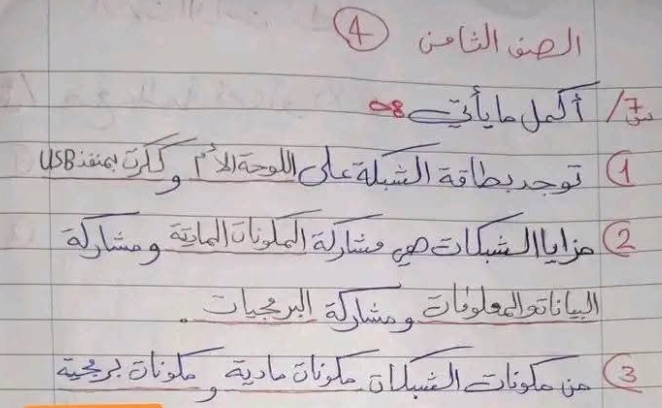 الصف الثامن ④
س7/ أكمل ما يأتي :-
① توجد بطاقة الشبكة على اللوحة الأم وككرت بمنفذ USB
② مزايا الشبكات هي مشاركة المكونات المادية ومشاركة
البيانات والمعلومات ومشاركة البرمجيات .
③ من مكونات الشبكات مكونات مادية و مكونات برمجية